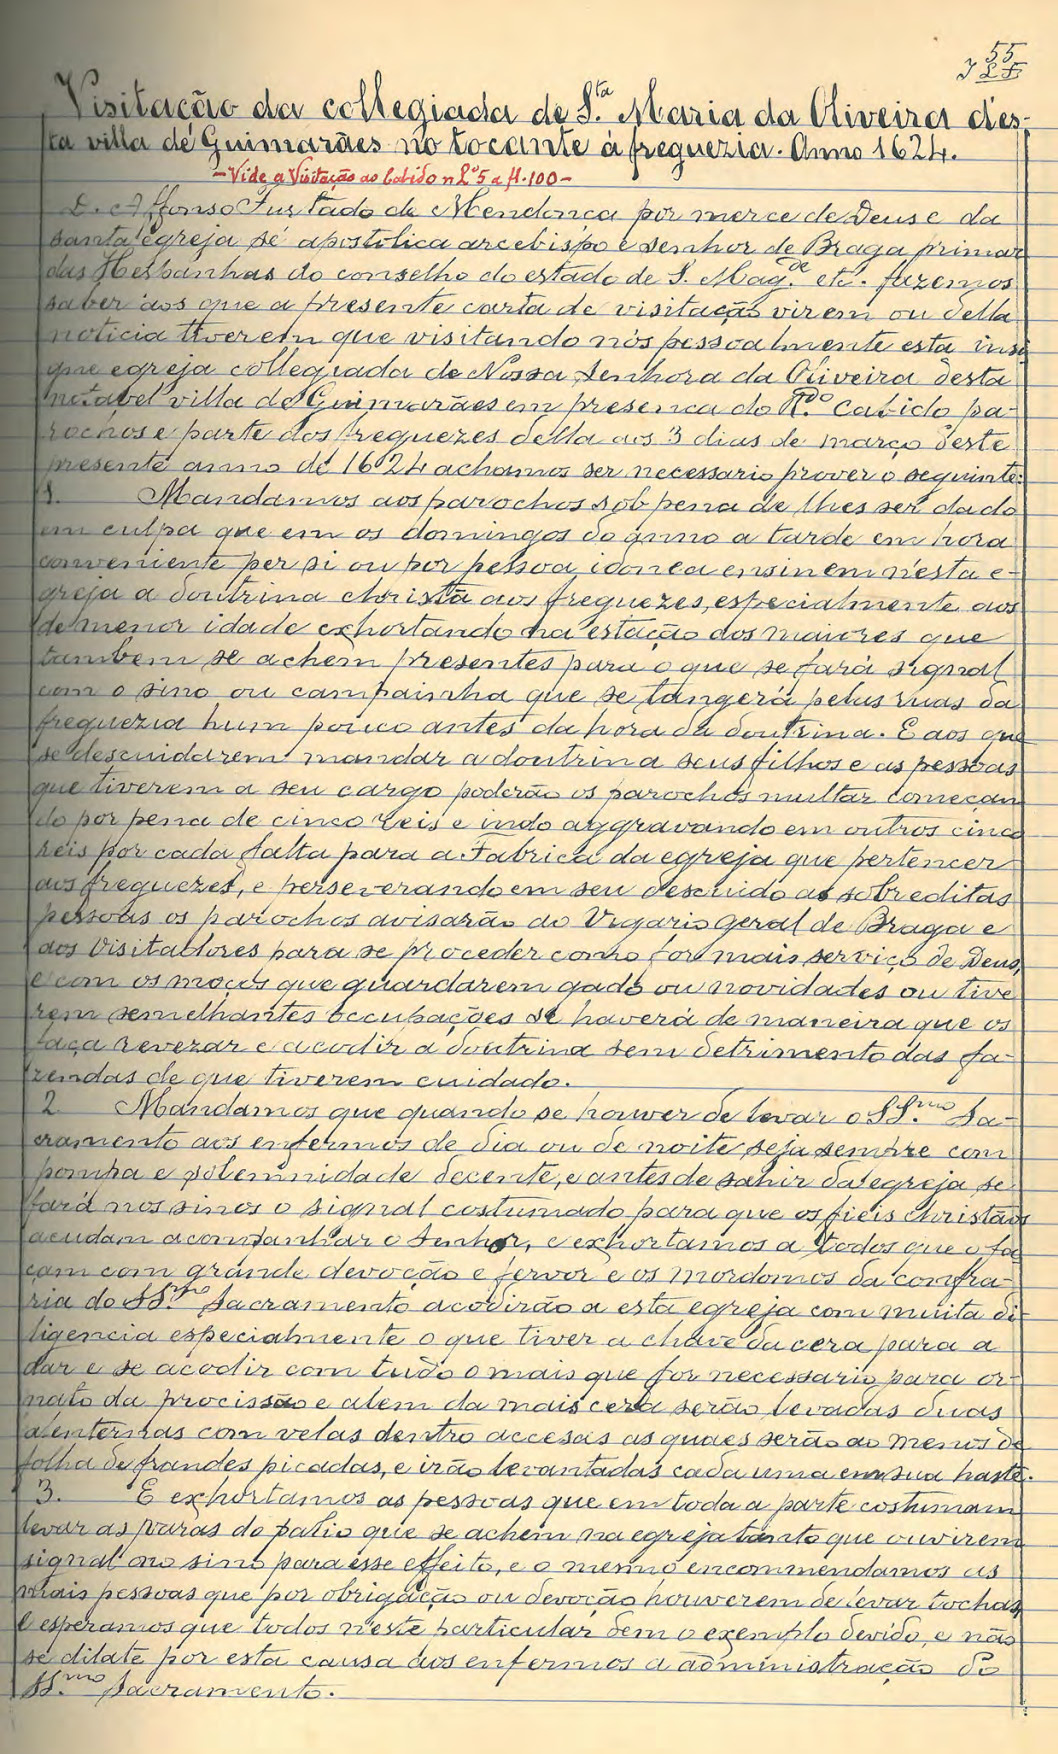 55
Visitação da collegiada de S.ta Maria da Oliveira des-
ta villa de Guimarães no tocante á freguezia. Anno 1624.
- Vide a Visitação ao Cabido n L.º 5 a fl. 100 -
D. Affonso Furtado de Mendonça por merce de Deus e da
santa egreja sé apostolica arcebispo e senhor de Braga primaz
das Hespanhas do conselho do estado de S. Mag.de etc. fazemos
saber aos que a presente carta de visitação virem ou della
noticia tiverem que visitando nós pessoalmente esta insi
gne egreja collegiada de Nossa Senhora da Oliveira desta
notavel villa de Guimarães em presenca do R.do Cabido pa-
rochos e parte dos freguezes della aos 3 dias de março deste
presente anno de 1624 achamos ser necessario prover o seguinte:
1. Mandamos aos parochos sob pena de lhes ser dado
em culpa que em os domingos do anno a tarde em hora
conveniente per si ou por pessoa idonea ensinem n'esta e-
greja a doutrina christã aos freguezes, especialmente aos
de menor idade exhortando na estação aos maiores que
tambem se achem presentes para o que se fará signal
com o sino ou campainha que se tangerá pelas ruas da
freguezia hum pouco antes da hora da doutrina. E aos que
se descuidarem mandar a doutrina seus filhos e as pessoas
que tiverem a seu cargo poderão os parochos multar começan
do por pena de cinco reis e indo aggravando em outros cinco
reis por cada falta para a Fabrica da egreja que pertencer
aos freguezes, e perseverando em seu descuido as sobreditas
pessoas os parochos avisarão ao Vigario geral de Braga e
aos Visitadores para se proceder como for mais serviço de Deus,
e com os moços que guardarem gado ou novidades ou tive
rem semelhantes occupações se haverá de maneira que os
faça revezar e acodir a doutrina sem detrimento das fa-
zendas de que tiverem cuidado.
2 Mandamos que quando se houver de levar o SS.mo Sa-
cramento aos enfermos de dia ou de noite seja sempre com
pompa e solemnidade decente, e antes de sahir da egreja se
fará nos sinos o signal costumado para que os fieis christãos
acudam acompanhar o Senhor, e exhortamos a todos que o fa
çam com grande devoção e fervor e os mordomos da confra-
ria do SS.mo Sacramento acodirão a esta egreja com muita di-
ligencia especialmente o que tiver a chave da cera para a
dar e se acodir com tudo o mais que for necessario para or-
nato da procissão e alem da mais cera serão levadas duas
alenternas com velas dentro accesas as quaes serão ao menos de
folha de frandes picadas, e irão levantadas cada uma em sua haste.
3. E exhortamos as pessoas que em toda a parte costumam
levar as varas do palio que se achem na egreja tanto que ouvirem
signal no sino para esse effeito, e o mesmo encommendamos as
mais pessoas que por obrigação ou devoção houverem de levar tochas
e esperamos que todos n'este particular dem o exemplo devido, e não
se dilate por esta causa aos enfermos a administração do
SS.mo Sacramento.